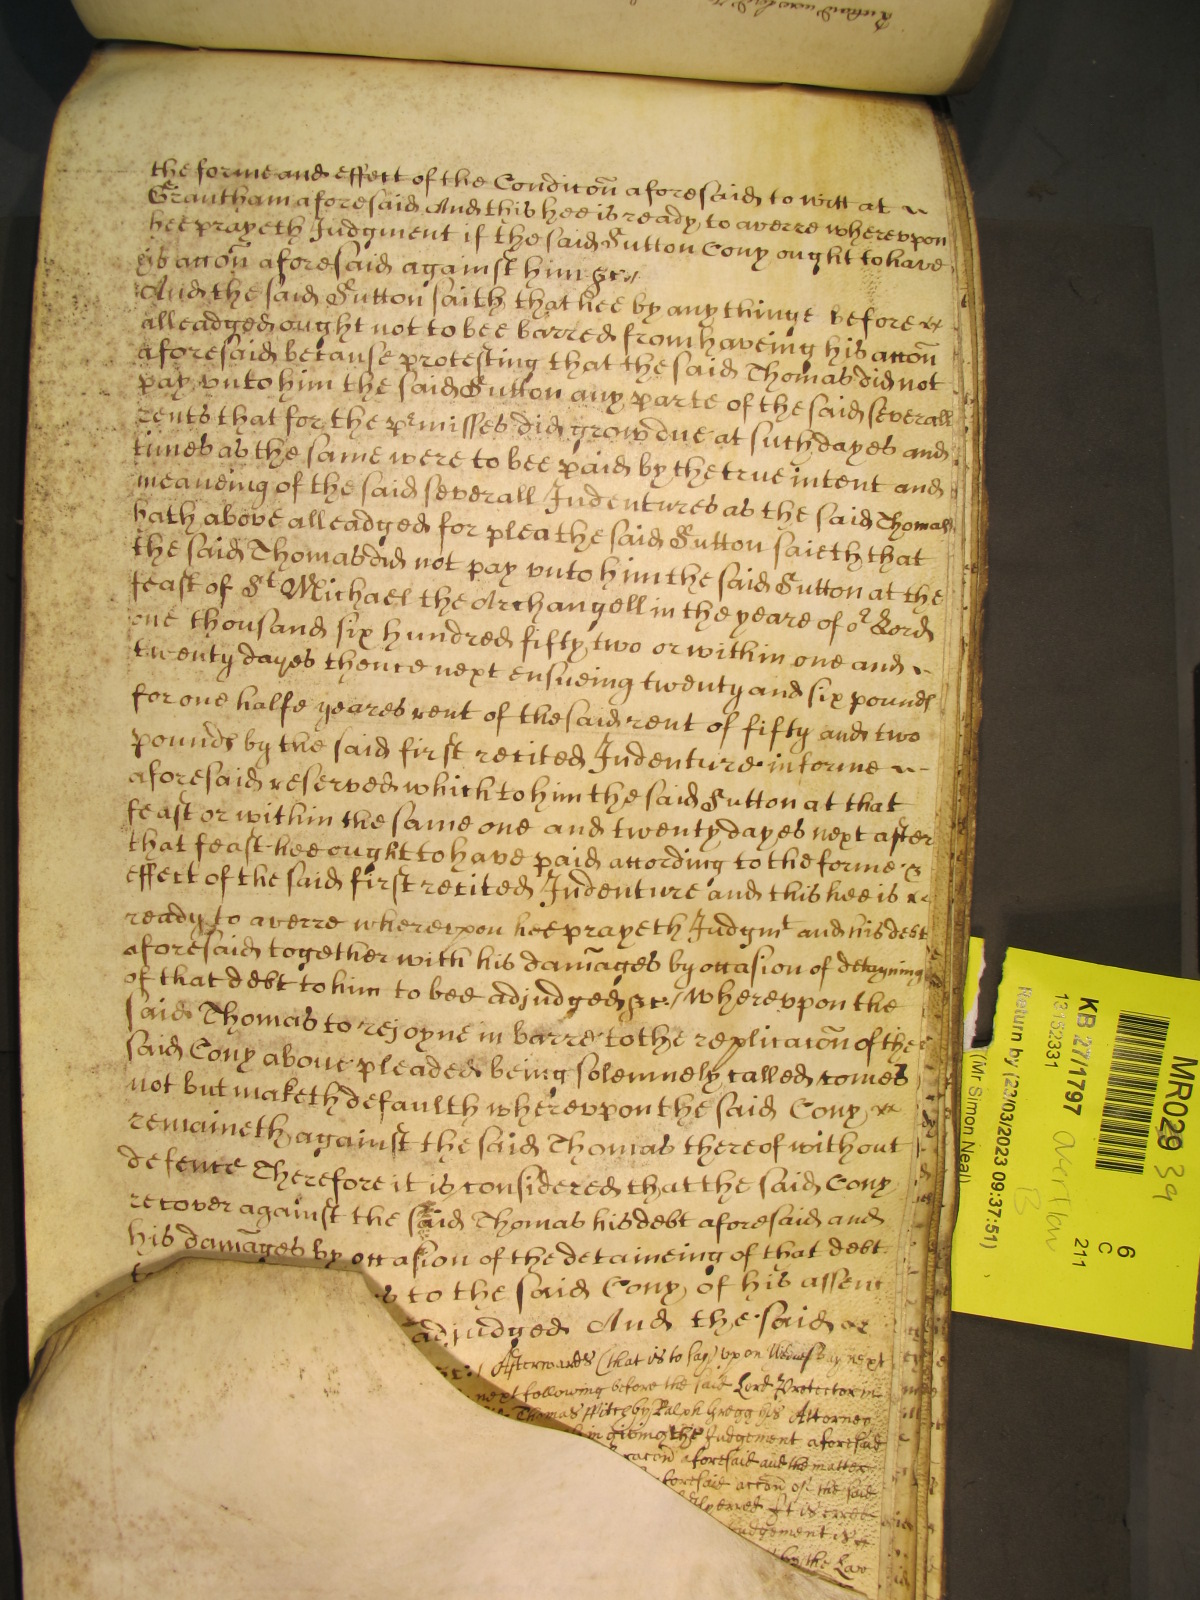 the forme and effect of the Condicōn aforesaid to witt at
Grantham aforesaid And this hee is ready to averre wherevpon
hee prayeth Judgment if the said Sutton Cony ought to have
his accōn aforesaid against him &c
And the said Sutton saith that hee by any thinge before
alleadged ought not to bee barred from haveing his accōn
aforesaid because protesting that the said Thomas did not
pay vnto him the said Sutton any parte of the said severall
rents that for the p~misses did grow due at such dayes and
times as the same were to bee paid by the true intent and
meaneing of the said severall Indentures as the said Thomas
hath above alleadged for plea the said Sutton saieth that
the said Thomas did not pay vnto him the said Sutton at the
feast of St Michael the Archangell in the yeare of or Lord
one thousand six hundred fifty two or within one and
twenty dayes thence next ensueing twenty and six pounds
for one halfe yeares rent of the said rent of fifty and two
pounds by the said first recited Indenture in forme
aforesaid reserved which to him the said Sutton at that
feast or within the same one and twenty dayes next after
that feast hee ought to have paid according to the forme &
effect of the said first recited Indenture and this hee is
ready to averre wherevpon hee prayeth Judgmt and his debt
aforesaid together with his damāges by occasion of detayning
of that debt to him to bee adjudged &c / Wherevpon the
said Thomas to rejoyne in barre to the replicacōn of the
said Cony above pleaded being solemnely called comes
not but maketh defaulth wherevpon the said Cony
remaineth against the said Thomas thereof without
defence Therefore it is considered that the said Cony
recover against the said Thomas his debt aforesaid and
his damāges by occasion of the detaineing of that debt
to the said Cony of his assent
adjudged And the said
&c: / Afterwards (that is to say) vpon Wednesday next
next following before the said Lord Protector in
Thomas ffitch by Ralph Gregg his Attorney
in giving the Judgement aforesaid
aforesaid and the matter
aforesaid accōn of the said
erred It is erred
Judgement is
by the Law
MR029 39
KB 27/1797
13152331
Return by (23/03/2023 09:37:51)
(Mr Simon Neal)
6
C
211
overflow
B